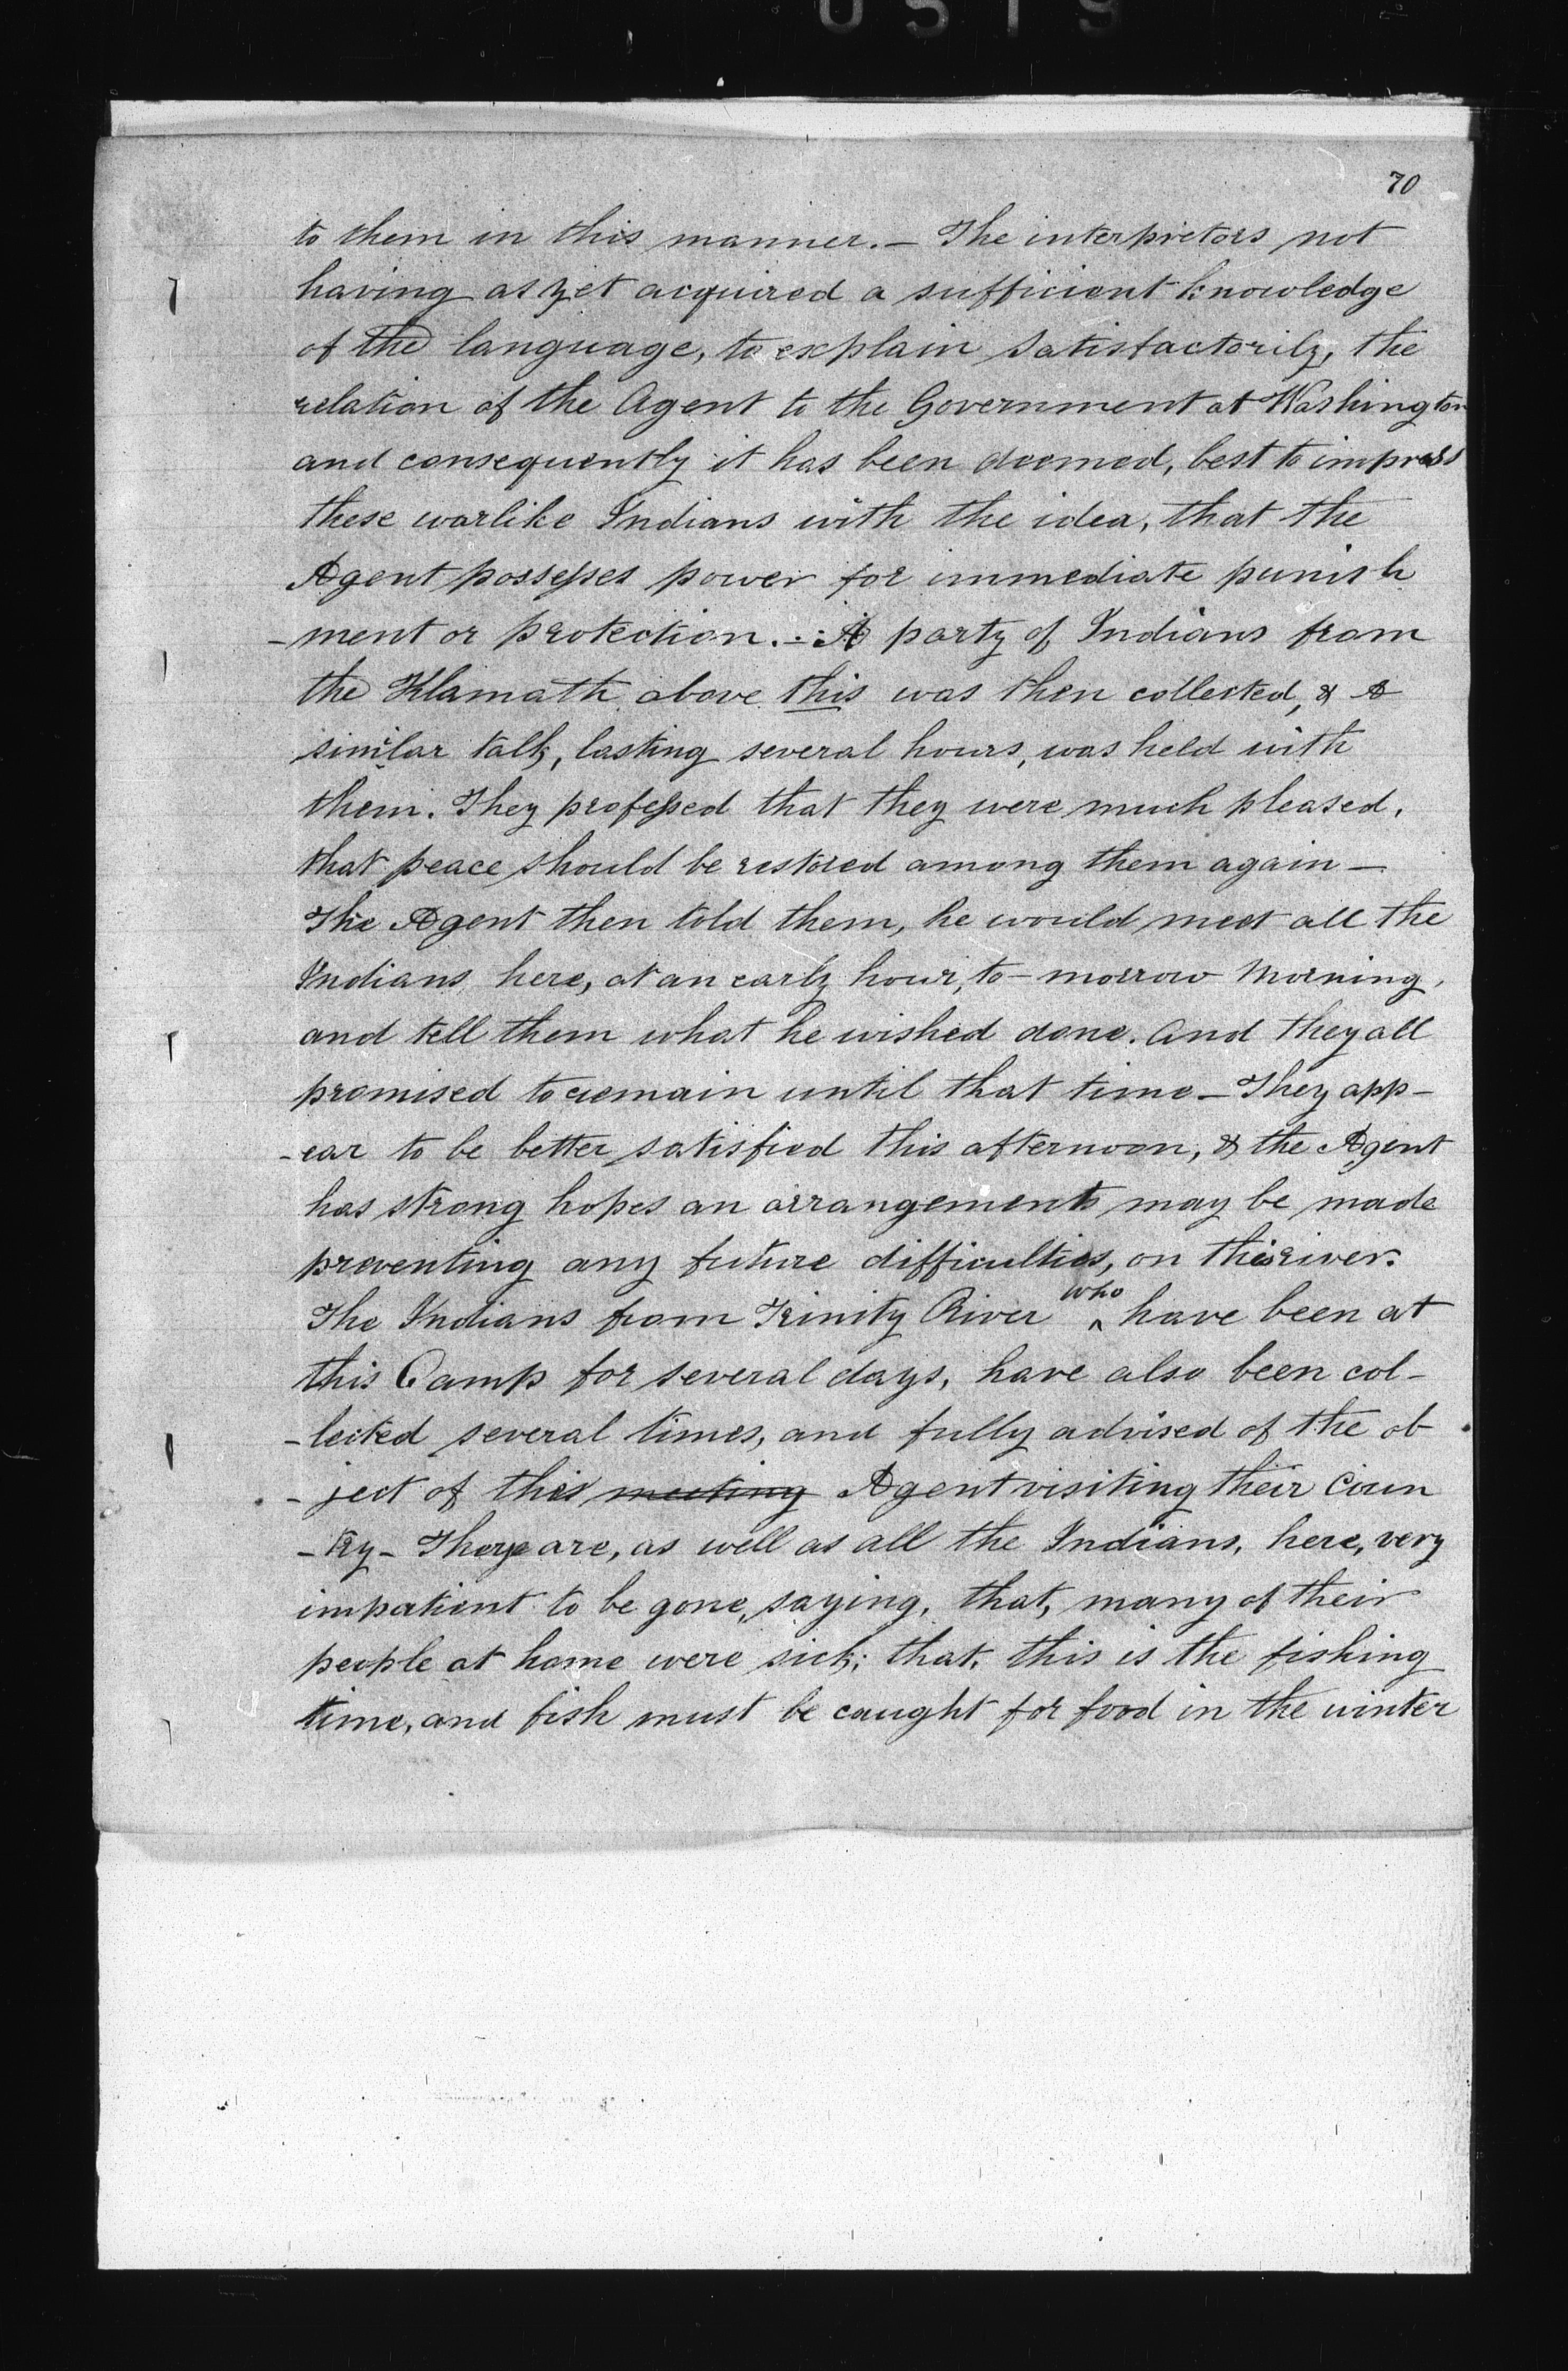 70
to them in this manner. — The interpretors not
having as yet acquired a sufficient knowledge
of the language, to explain satisfactorily, the
relation of the Agent to the Government at Washington
and consequently it has been deemed, best to impress
these warlike Indians with the idea, that the
Agent possesses power for immediate punish
-ment or protection. - A party of Indians from
the Klamath above this was then collected, & a
similar talk, lasting several hours, was held with
them. They professed that they were much pleased,
that peace should be restored among them again —
The Agent then told them, he would meet all the
Indians here, at an early hour, to-morrow morning,
and tell them what he wished done. And they all
promised to remain until that time — They app-
-ear to be better satisfied this afternoon, & the Agent
has strong hopes an arrangements may be made
preventing any future difficulties, on this river.
The Indians from Trinity River who have been at
this Camp for several days, have also been col-
-lected several times, and fully advised of the ob
-ject of this meeting Agent visiting their Coun
-try - They are, as well as all the Indians, here, very
impatient to be gone, saying, that, many of their
people at home were sick; that, this is the fishing
time, and fish must be caught for food in the winter